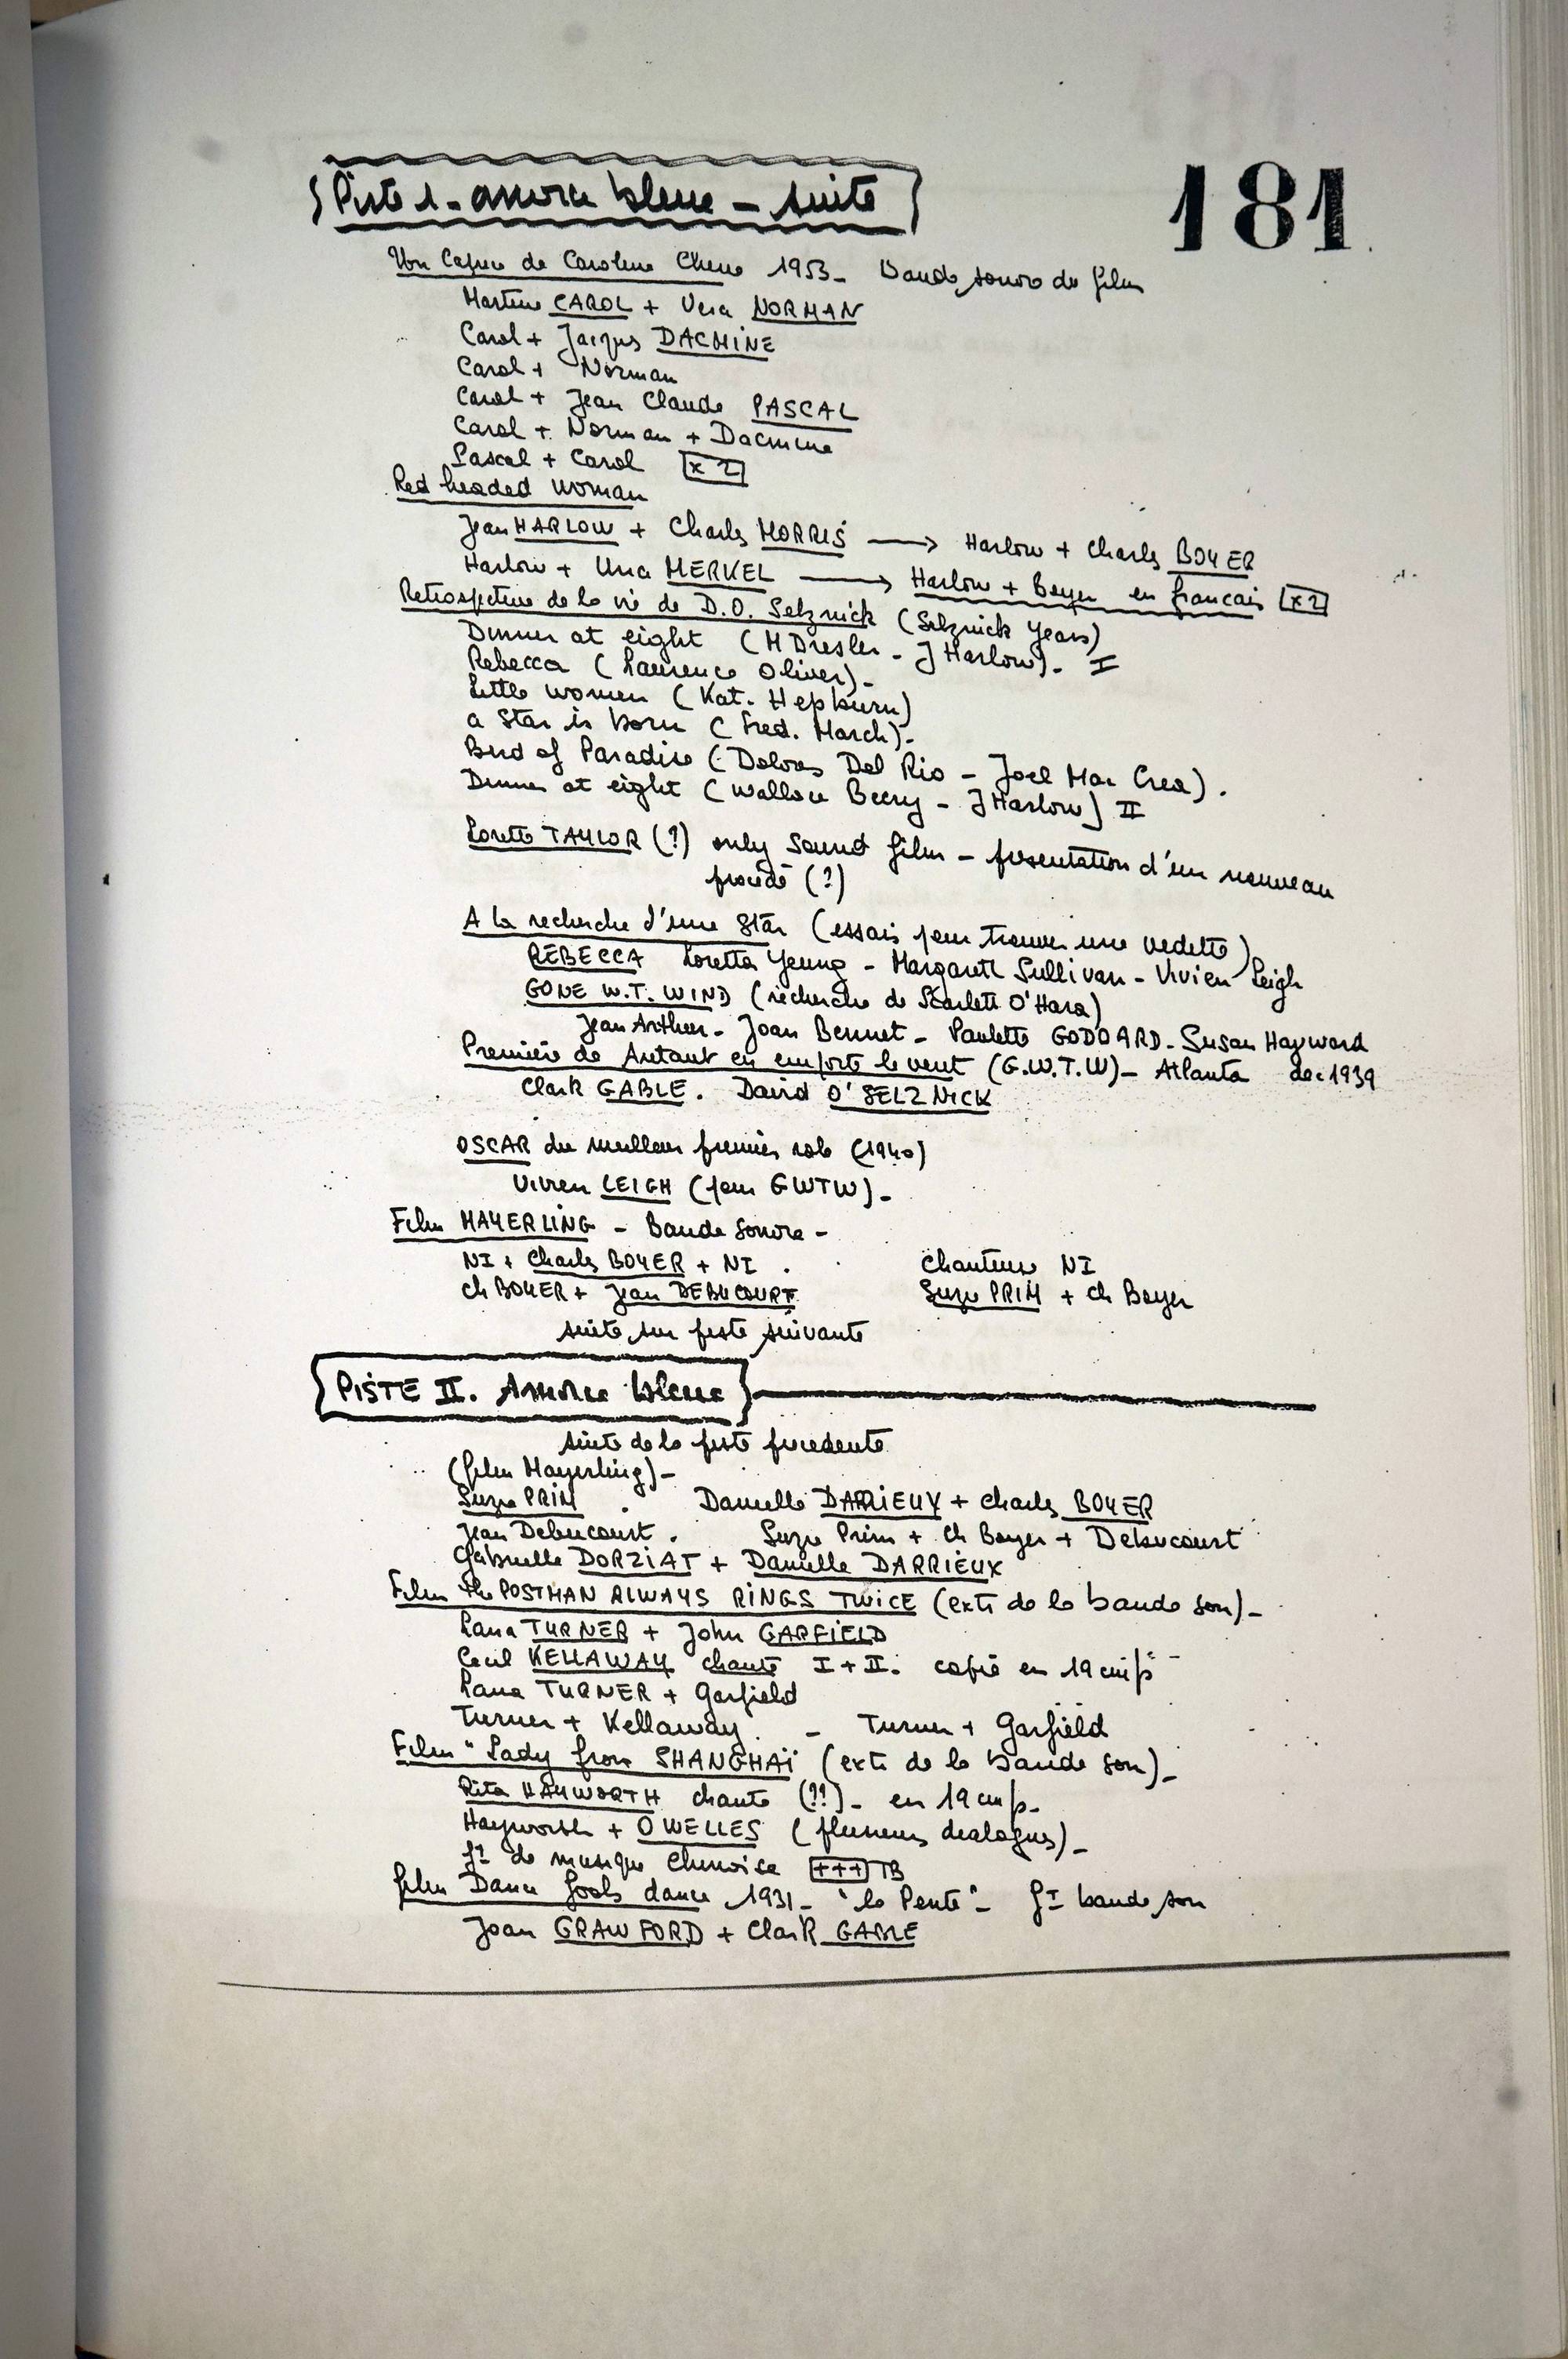 181
Piste 1 - amorce bleue - suite
Un Caprice de Caroline Cherie 1953 - Bande sonore de film
Martine CAROL + Vera NORMAN
Carol + Jacques DACMINE
Carol + Norman
Carol + Jean Claude PASCAL
Carol + Norman + Dacmine
Pascal + Carol [x 2]
Red headed woman
Jean HARLOW + Charles MORRIS → Harlow + Charles BOYER
Harlow + Una MERKEL → Harlow + Boyer en francais [x 2]
Retrospective de la vie de D.O. Selznick (Selznick Years)
Dinner at eight (M Dresler - J Harlow) - I
Rebecca (Laurence Olivier) -
Little women (Kat. Hepburn)
a Star is born (Fred. March) -
Bird of Paradise (Dolores Del Rio - Joel Mac Crea) .
Dinner at eight (Wallace Beery - J Harlow) II
Lorette TAYLOR (?) only sound film - presentation d'un nouveau
procédé (?)
A la recherche d'une Star (essais pour trouver une vedette)
REBECCA Loretta Young - Margareth Sullivan - Vivien Leigh
GONE W.T. WIND (recherche de Scarlett O'Hara)
Jean Arthur - Joan Bennet - Paulette GODDARD - Susan Hayward
Première de Autant en emporte le vent (G.W.T.W) - Atlanta dec 1939
Clark GABLE . David O'SELZNICK
OSCAR du meilleur premier role (1940)
Vivien LEIGH (pour GWTW) -
Film MAYERLING - Bande sonore -
NI + Charles BOYER + NI . Chanteuse NI
Ch BOYER + Jean DEBUCOURT Suzy PRIM + Ch Boyer
suite sur piste suivante
PISTE II. Amorce bleue
suite de la piste precedente
(film Mayerling) -
Suzy PRIM . Danielle DARRIEUX + Charles BOYER
Jean Debucourt . Suzy Prim + Ch Boyer + Debucourt
Gabrielle DORZIAT + Danielle DARRIEUX
Film the POSTMAN ALWAYS RINGS TWICE (exts de la bande son) -
Lana TURNER + John GARFIELD
Cecil KELLAWAY chante I + II . copié en 19 cm/s
Lana TURNER + Garfield
Turner + Kellaway - Turner + Garfield
Film "Lady from SHANGHAÏ (exts de la bande son) -
Rita HAYWORTH chante (??) - en 19 cm/s -
Hayworth + O WELLES (plusieurs dialogues) -
ft de musique chinoise [+++] TB
film Dance fools dance 1931 - "la Pente" - ft bande son
Joan GRAWFORD + Clark GABLE